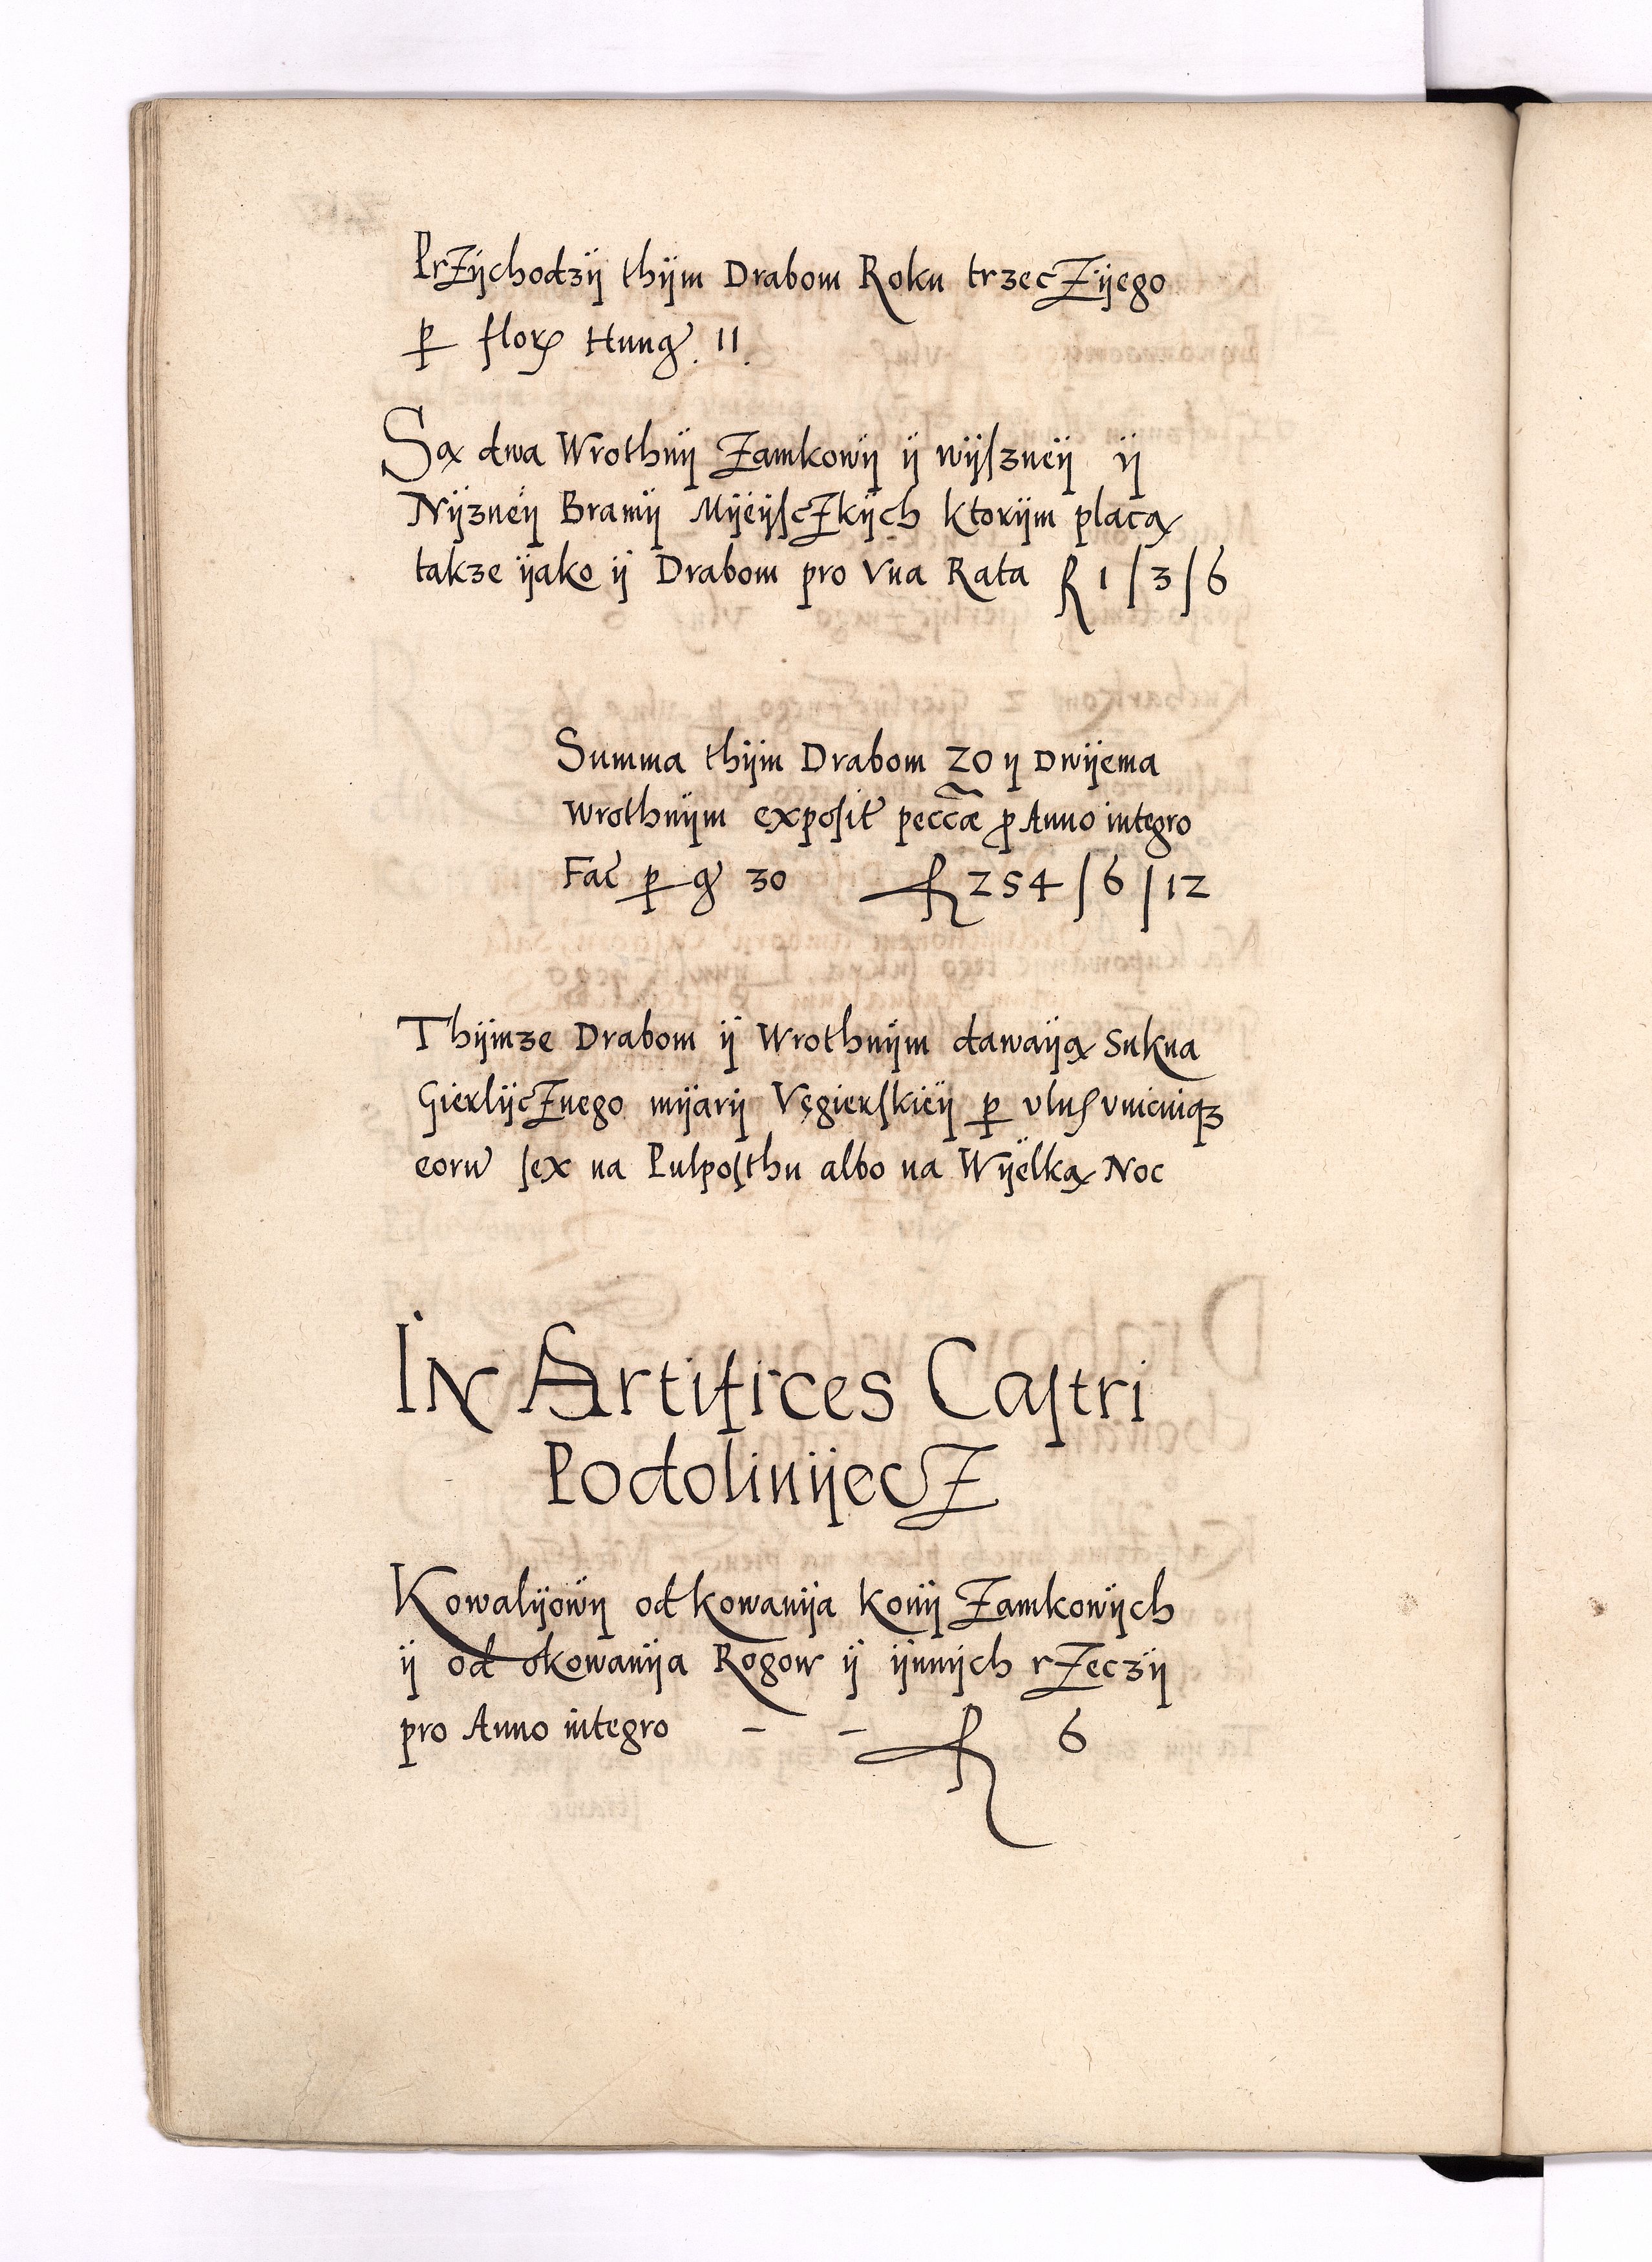 PrZÿchodzÿ thÿm Drabom Roku trzecZÿego
ꝑ floꝝ Hung. 11.
Są dwa Wrothnÿ Zamkowÿ ÿ wÿſzneÿ ÿ
Nÿzneÿ Bramÿ MÿeÿſcZkÿch ktorÿm placą
takze ÿako ÿ Drabom pro Vna Rata R 1 / 3 / 6
Summa thÿm Drabom 20 ÿ Dwÿema
Wrothnÿm expoſit peccæ ꝓ Anno integro
Fac ꝑ g 30 R 254 / 6 / 12
Thÿmze Drabom ÿ Wrothnÿm dawaÿą Sukna
GierlÿcZnego mÿarÿ Vęgierſkieÿ ꝑ vlnſ vnicuiqꝫ
eoru ſex na Pulpoſthu albo na Wÿelką Noc
IN Artifices Caſtri
PodolinÿecZ
Kowalÿowÿ od kowanÿa konÿ Zamkowÿch
ÿ od okowanÿa Rogow ÿ ÿnnÿch rZeczÿ
pro Anno integro – – R 6